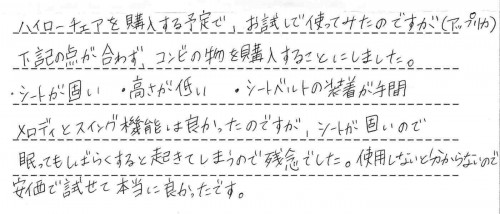 ハイローチェアを購入する予定で、お試しで使ってみたのですが(アップリカ)
下記の点が合わず、コンビの物を購入することにしました。
・シートが固い ・高さが低い ・シートベルトの装着が手間
メロディとスイング機能は良かったのですが、シートが固いので
眠ってもしばらくすると起きてしまうので残念でした。使用しないと分からないので
安価で試せて本当に良かったです。